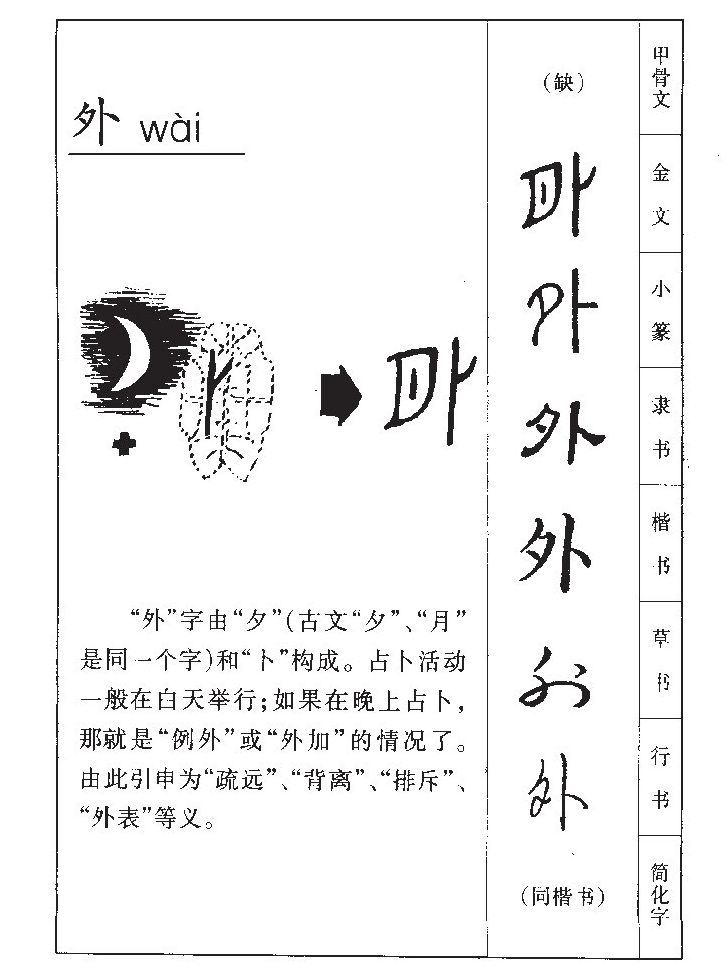 外 wài
“外”字由“夕”(古文“夕”、“月”
是同一个字)和“卜”构成。占卜活动
一般在白天举行;如果在晚上占卜,
那就是“例外”或“外加”的情况了。
由此引申为“疏远”、“背离”、“排斥”、
“外表”等义。
(缺)
甲骨文
外
金文
外
小篆
外
隶书
外
楷书
外
草书
外
行书
(同楷书)
简化字